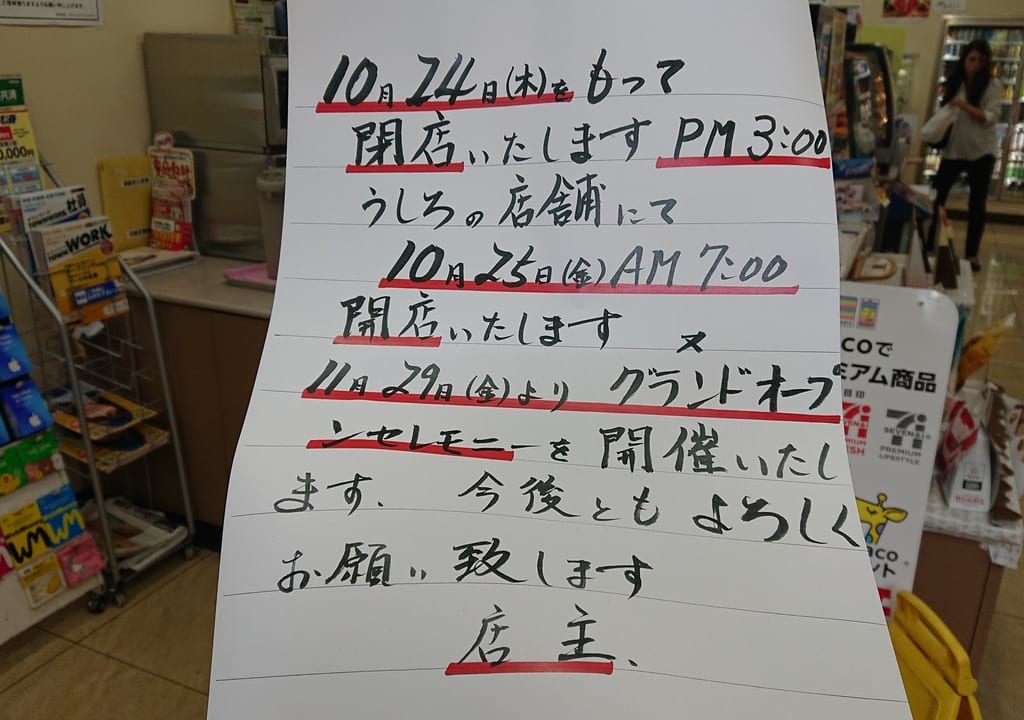 10月24日(木)をもって
閉店いたします PM 3:00
うしろの店舗にて
10月25日(金)AM 7:00
開店いたします
又
11月29日(金)より グランドオープ
ンセレモニーを開催いたし
ます、今後ともよろしく
お願い致します
店主、
TOWNWORK 社員
WORK
TOWN
0.000円
COで
ミアム商品
SEVEN&i
PREMIUM
LIFESTYLE
aco
ント